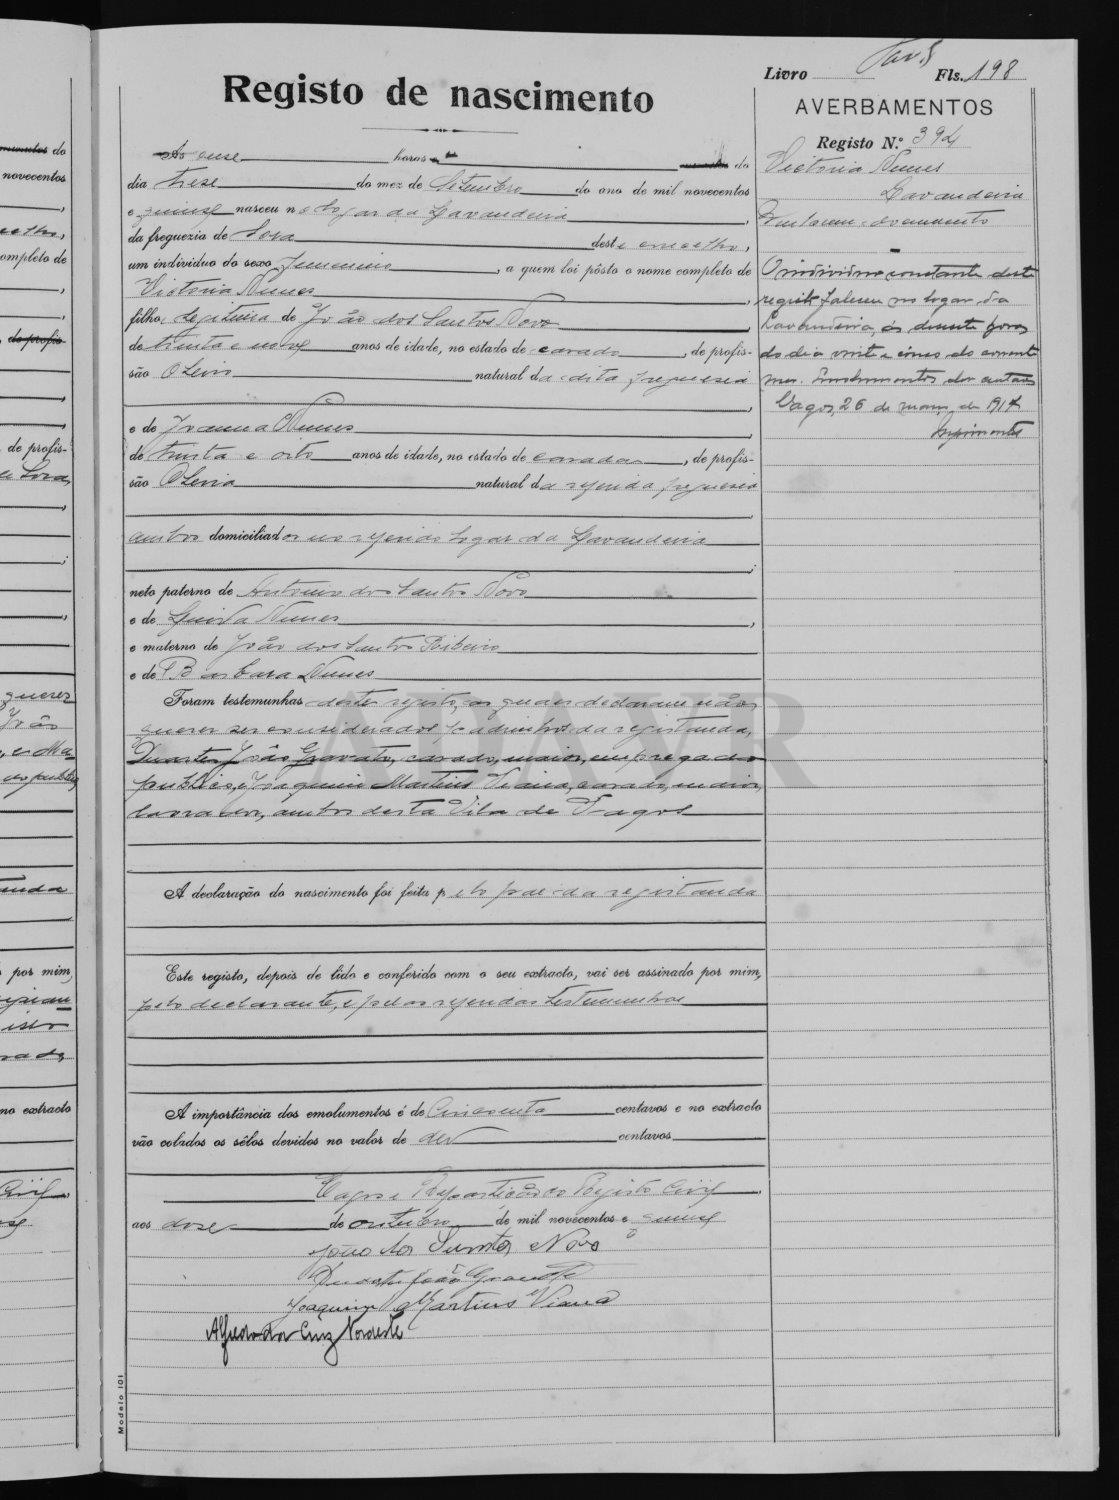 Livro Fls. 198
Registo de nascimento
AVERBAMENTOS
Registo N.º 394
Victoria Nunes
Lavandeira
As onse horas do
dia trese do mez de Setembro do ano de mil novecentos
e quinse nasceu no logar da Lavandeira,
da freguezia de Soza deste concelho,
um individuo do sexo femenino, a quem foi pôsto o nome completo de
Victoria Nunes,
filha legitima de João dos Santos Novo,
de trinta e nove anos de idade, no estado de casado, de profis-
são Oleiro natural da dita freguesia,
e de Joanna Nunes,
de trinta e oito anos de idade, no estado de casada, de profis-
são Oleira natural da referida freguesia,
ambos domiciliados no referido logar da Lavandeira;
neto paterno de Antonio dos Santos Novo
e de Guiva Nunes,
e materno de João dos Santos Ribeiro
e de Barbara Nunes
Foram testemunhas deste registo, as quaes declararam não
querer ser considerados padrinhos da registanda,
Duarte João Gravato, casado, maior, empregado
publico, e Joaquim Martins Viana, casado, maior,
lavrador, ambos desta Vila de Vagos
A declaração do nascimento foi feita pelo pae da registanda
Este registo, depois de lido e conferido com o seu extracto, vai ser assinado por mim,
pelo declarante, e pelas referidas testemunhas
A importância dos emolumentos é de Cincoenta centavos e no extracto
vão colados os sêlos devidos no valor de dez centavos
Vagos e Repartição do Registo Civil,
aos dose de outubro de mil novecentos e quinse
João dos Santos Novo
Duarte João Gravato
Joaquim Martins Viana
Alfredo da Cruz Nordeste
O individuo constante deste
registo faleceu no logar da
Lavandeira, ás desasete horas
do dia vinte e cinco do corrente
mez.
Vagos, 26 de março de 1917
Modelo 101
do
novecentos
completo de
de profis-
de profis-
e Soza,
querer
João
por mim,
no extracto
Civil,
AGAVR